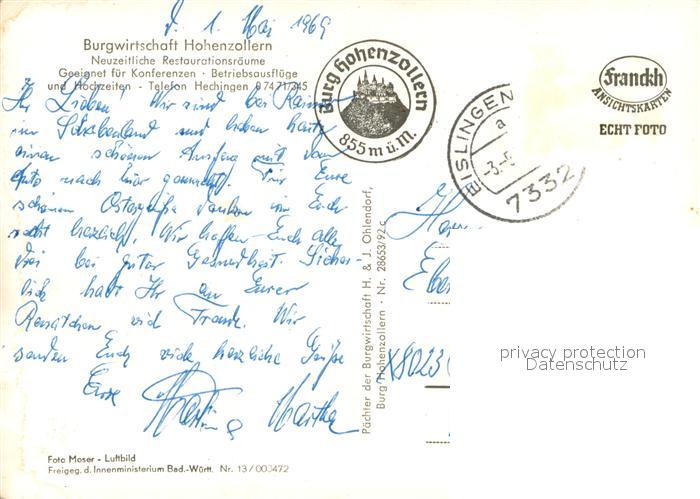 d. 1. Mai 1969
Burgwirtschaft Hohenzollern
Neuzeitliche Restaurationsräume
Geeignet für Konferenzen · Betriebsausflüge
und Hochzeiten · Telefon Hechingen 07471/345
Ihr Lieben! Wir sind bei Rainer
im Schwabenland und haben heute
einen schönen Ausflug mit dem
Auto nach hier gemacht. Für Eure
schönen Ostergrüße danken wir Euch
recht herzlich. Wir hoffen Euch alle
drei bei guter Gesundheit. Sicher-
lich habt Ihr an Eurer
viel Freude. Wir
senden Euch viele herzliche Grüße
Eure
Martin & Martha
Foto Moser - Luftbild
Freigeg. d. Innenministerium Bad.-Württ. Nr. 13/003472
Pächter der Burgwirtschaft H. & J. Ohlendorf,
Burg Hohenzollern · Nr. 28653/92 c
Burg Hohenzollern
855 m ü. M.
EISLINGEN
a
-3.-5
7332
Franckh
ANSICHTSKARTEN
ECHT FOTO
X8023
privacy protection
Datenschutz